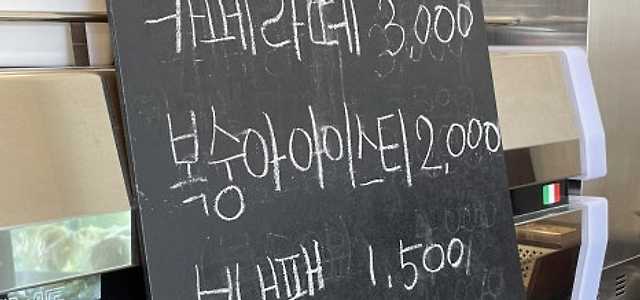 카페라떼 3,000
복숭아아이스티 2,000
1.500